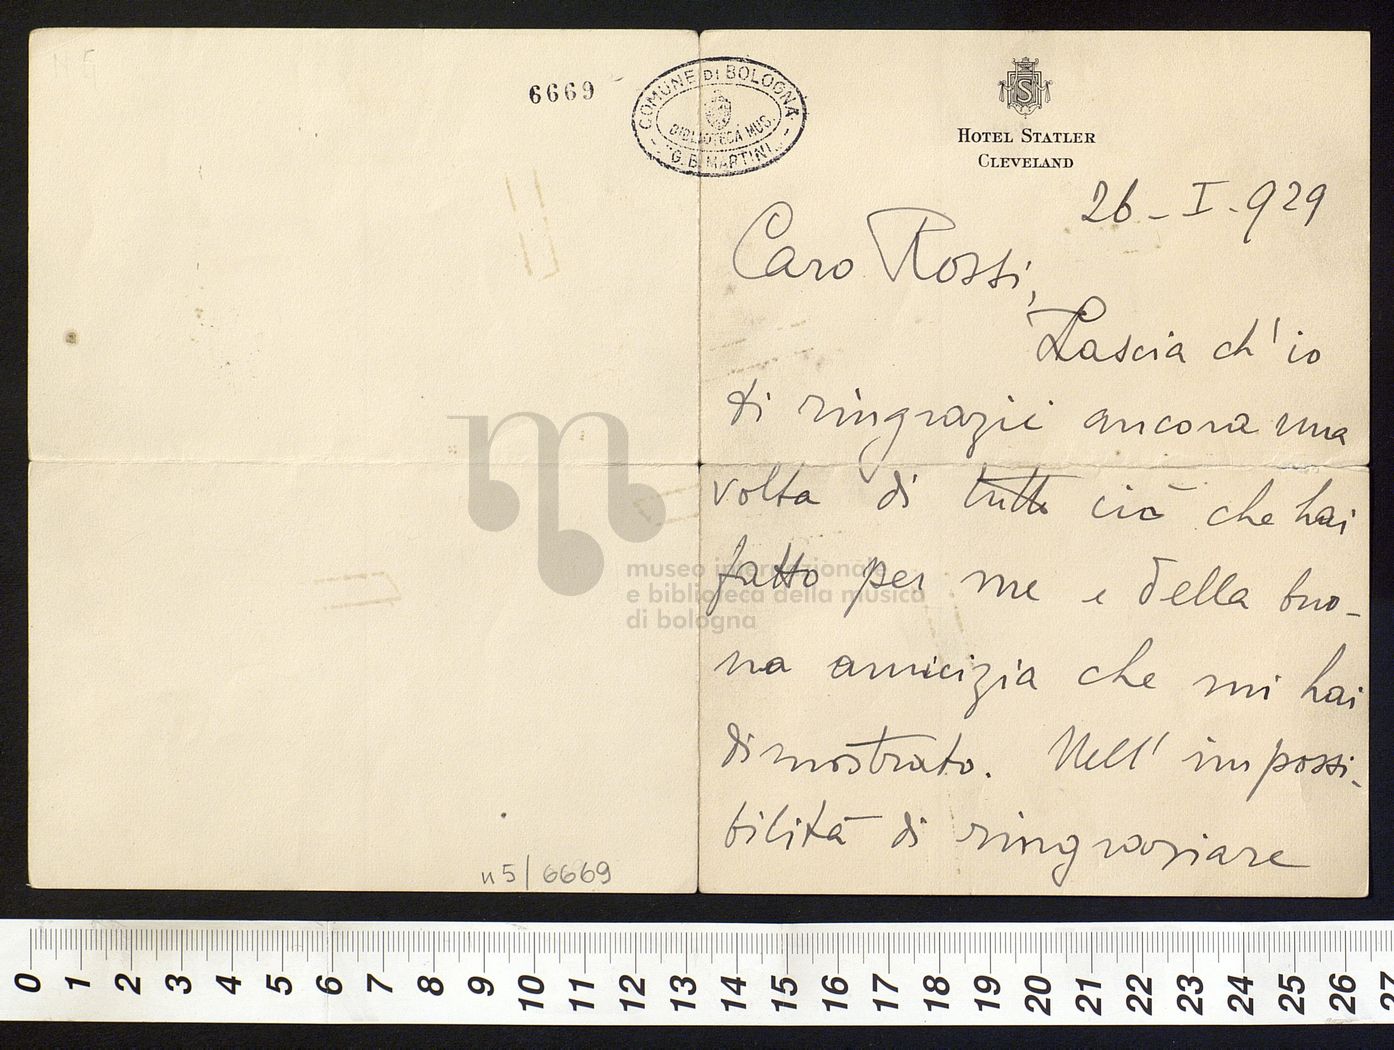 6669
COMUNE DI BOLOGNA
BIBLIOTECA MUS.
"G. B. MARTINI"
S
HOTEL STATLER
CLEVELAND
26 - I - 929
Caro Rossi,
Lascia ch'io
ti ringrazii ancora una
volta di tutto ciò che hai
fatto per me e della buo-
na amicizia che mi hai
dimostrato. Nell'impossi-
bilità di ringraziare
n5/6669
museo internazionale
e biblioteca della musica
di bologna
0 1 2 3 4 5 6 7 8 9 10 11 12 13 14 15 16 17 18 19 20 21 22 23 24 25 26 27